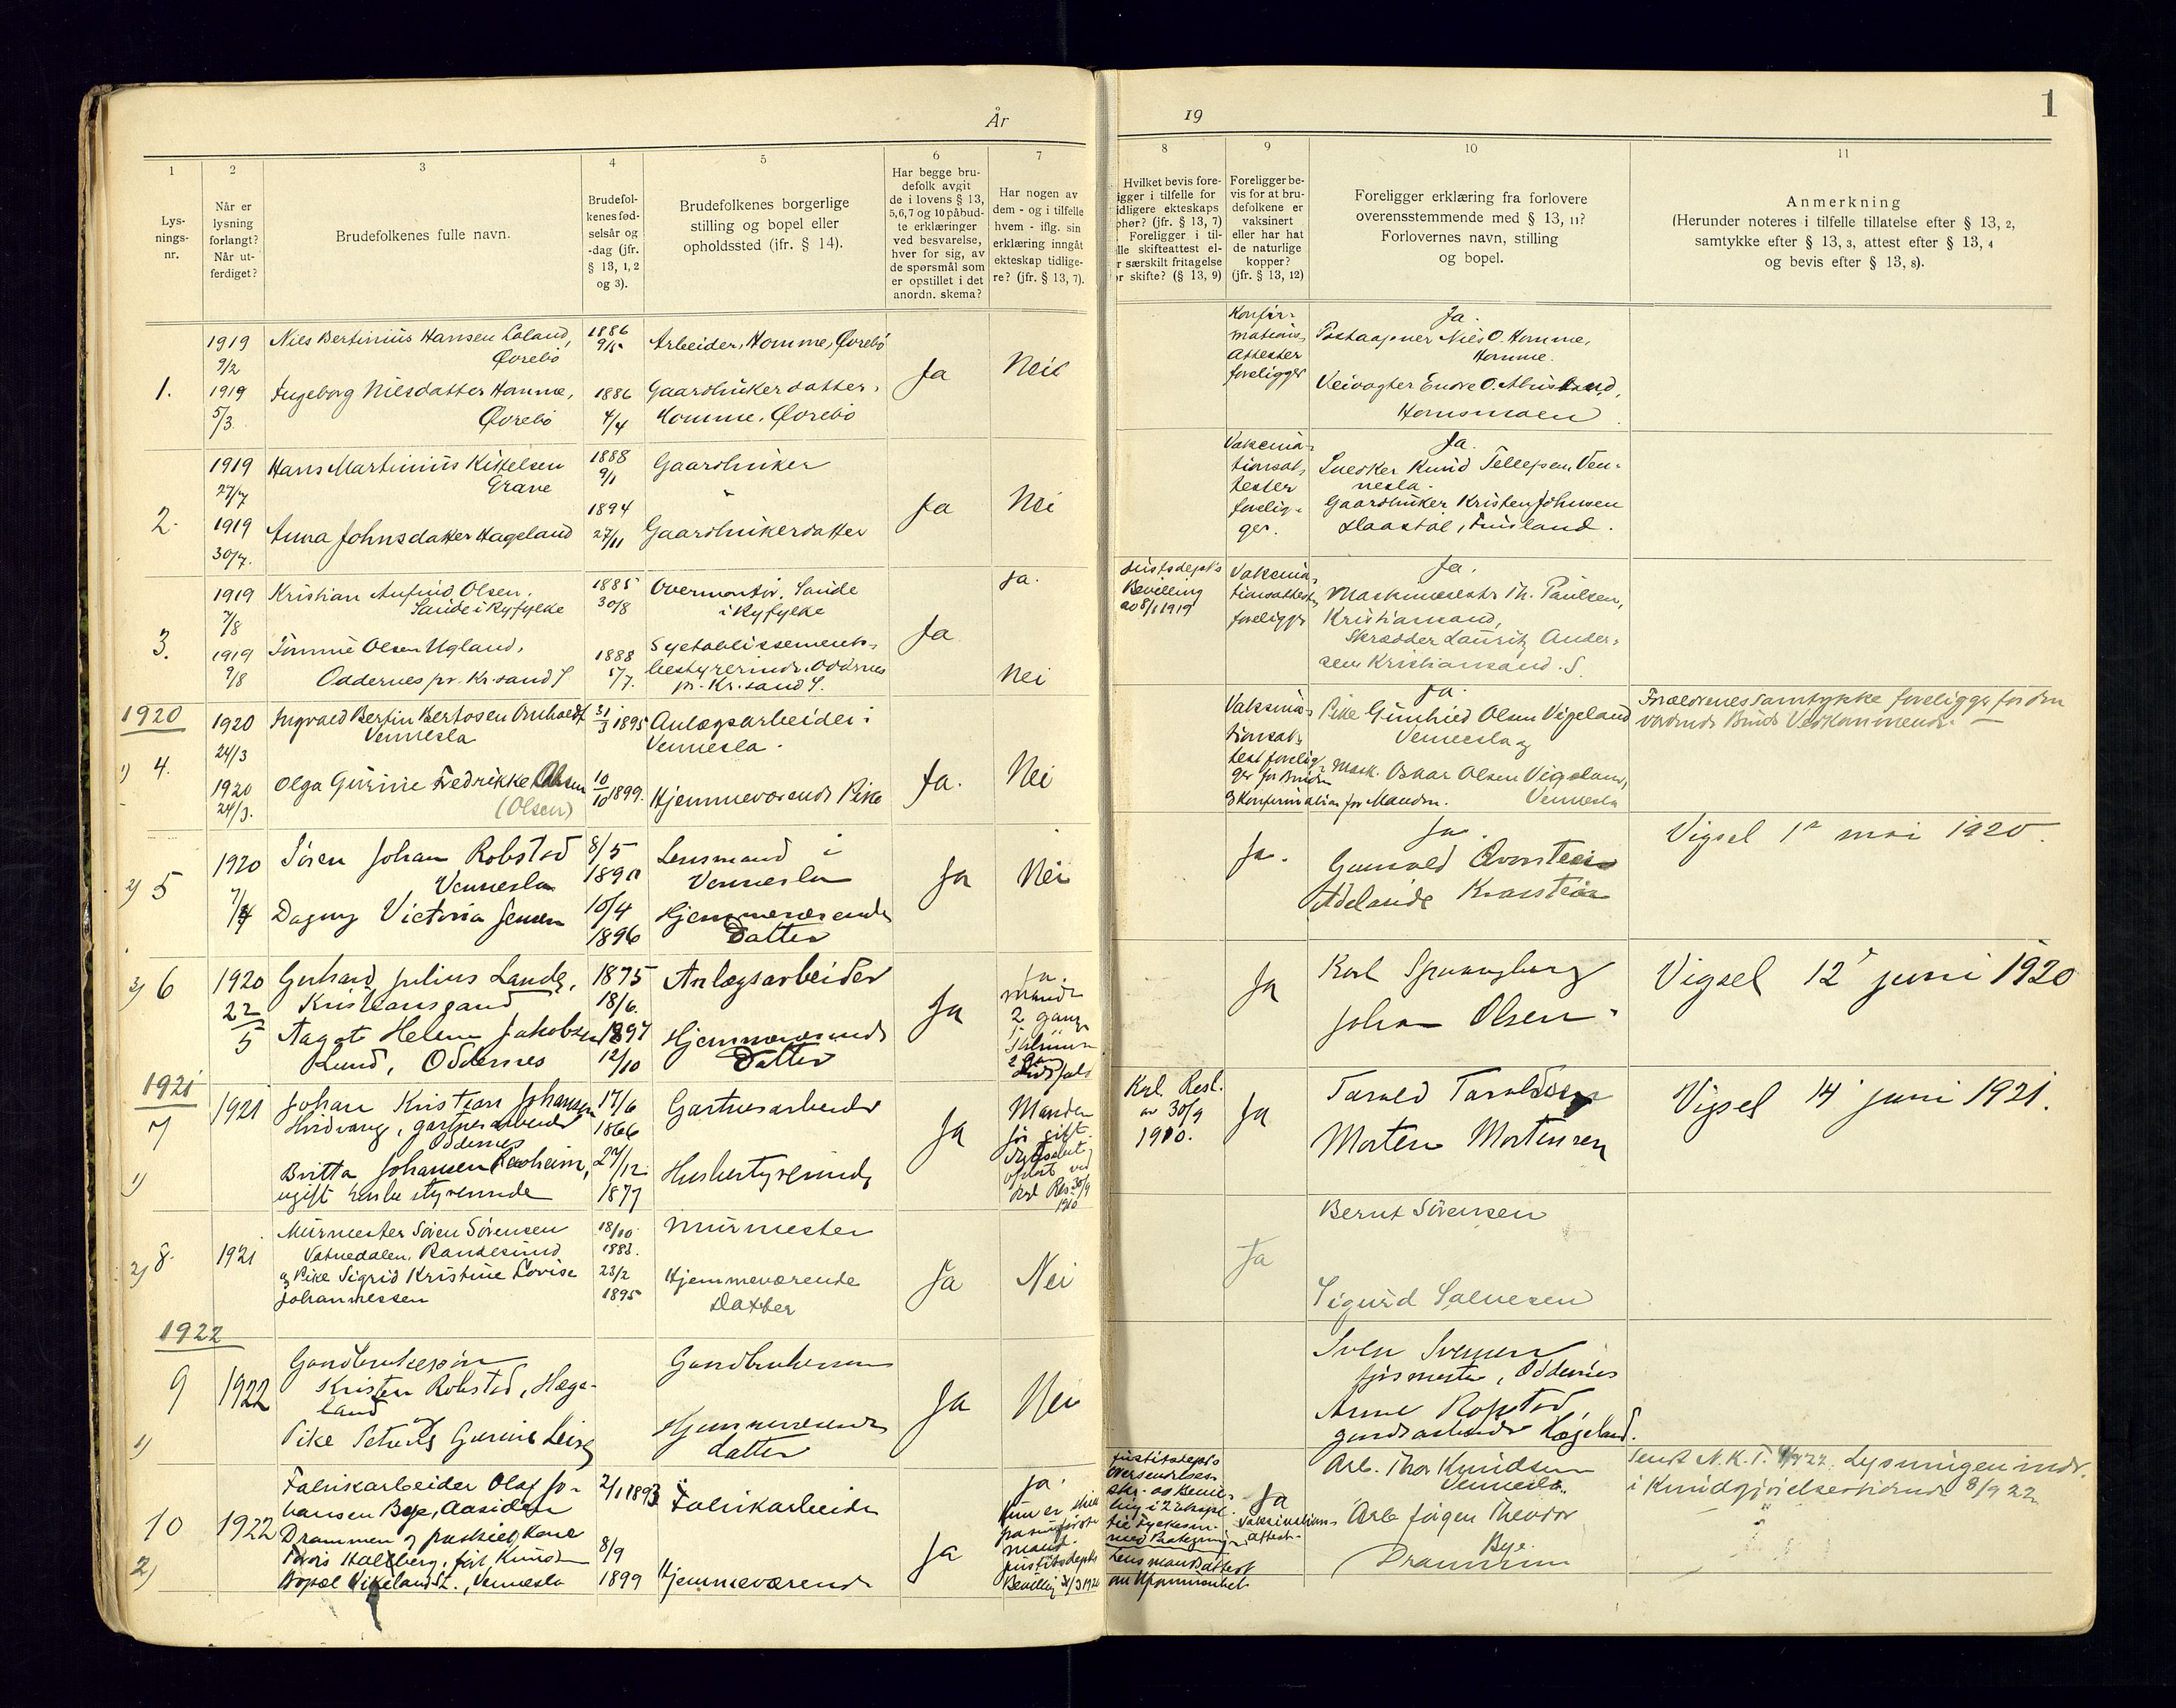 År
19
1
1
2
3
4
5
6
7
8
9
10
11
Lys-
nings-
nr.
Når er
lysning
forlangt?
Når ut-
ferdiget?
Brudefolkenes fulle navn.
Brudefol-
kenes fød-
selsår og
-dag (jfr.
§ 13, 1, 2
og 3).
Brudefolkenes borgerlige
stilling og bopel eller
opholdssted (jfr. § 14).
Har begge bru-
defolk avgit
de i lovens § 13,
5, 6, 7 og 10 påbud-
te erklæringer
ved besvarelse,
hver for sig, av
de spørsmål som
er opstillet i det
anordn. skema?
Har nogen av
dem - og i tilfelle
hvem - iflg. sin
erklæring inngåt
ekteskap tidlige-
re? (jfr. § 13, 7).
Hvilket bevis fore-
igger i tilfelle for
idligere ekteskaps
phør? (jfr. § 13, 7)
Foreligger i til-
lle skifteattest el-
r særskilt fritagelse
or skifte? (§ 13, 9)
Foreligger be-
vis for at bru-
defolkene er
vaksinert
eller har hat
de naturlige
kopper?
(jfr. § 13, 12)
Foreligger erklæring fra forlovere
overensstemmende med § 13, 11?
Forlovernes navn, stilling
og bopel.
Anmerkning
(Herunder noteres i tilfelle tillatelse efter § 13, 2,
samtykke efter § 13, 3, attest efter § 13, 4
og bevis efter § 13, 8).
1.
1919
9/2
1919
5/3.
Nils Bertinius Hansen Loland,
Øvrebø
Ingeborg Nilsdatter Homme,
Øvrebø
1886
9/5
1886
4/4
Arbeider, Homme, Øvrebø
Gaardbrukerdatter,
Homme, Øvrebø
Ja
Nei
Konfir-
mations-
attester
foreligger
Ja.
Postaapner Nils O. Homme,
Homme.
Veivogter Endre O.
Homsmoen
2.
1919
27/7
1919
30/7.
Hans Martinius Kittelsen
Grave
Anna Johnsdatter Hageland
1888
9/1
1894
27/11
Gaardbruker
Gaardbrukerdatter
Ja
Nei
Vaksina-
tionsat-
tester
forelig-
ger.
Ja.
Snedker Knud Tellefsen, Ven-
nesla.
Gaardbruker Kristen Johnsen
Haastøl, Finsland.
3.
1919
7/8
1919
9/8
Kristian Olsen.
Saude i Ryfylke
Olsen Ugland,
Oddernes pr. Kr.sand S
1885
30/8
1888
5/7.
Overmontør, Saude
i Ryfylke
Syetablissements-
bestyrerinde, Oddernes
pr. Kr.sand S.
Ja
Ja.
Nei
Justsdepts
Bevilling
av 8/1 1919
Vaksina-
tionsattester
foreligger
Ja.
Th. Paulsen,
Kristiansand,
Skrædder Lauritz Ander-
sen Kristiansand. S.
1920
1) 4.
1920
24/3
1920
24/3.
Ingvald Bertin Bertosen Omholdt
Vennesla
Olga Gurine Fredrikke Olsen
(Olsen)
31/3 1895
10/10 1899.
Anlægsarbeider i
Vennesla.
Hjemmeværende Pike
Ja.
Nei
Vaksina-
tionsat-
test forelig-
ger for Bruden
& Konfirmation for Manden.
Ja.
Pike Gunhild Olsen Vigeland
Vennesla og
Mask. Oskar Olsen Vigeland,
Vennesla
Forældrenes samtykke foreligger for den
vordende Bruds Vedkommende. —
2) 5
1920
7/4
Søren Johan Robstad
Vennesla
Dagny Victoria Jensen
8/5
1890
10/4
1896
Lensmand i
Vennesla
Hjemmeværende
Datter
Ja
Nei
Ja.
Ja.
Gunvald
Adelaide
Vigsel 1ste mai 1920.
3) 6
1920
22/5
Gerhard Julius Lande,
Kristiansand
Aagot Helene Jakobsen
Lund, Oddernes
1875
18/6.
1897
12/10
Anlægsarbeider
Hjemmeværende
Datter
Ja
Ja.
Manden
2 gange
Ja
Karl Spannberg
Johan Olsen.
Vigsel 12. juni 1920
1921
7
1)
1921
Johan Kristian Johansen
Hvidvang, gartnerarbeider
Oddernes
Britta Johansen
ugift husbestyrerinde
17/6
1866
27/12
1877
Gartnerarbeider
Husbestyrerinde
Ja
Manden
før gift.
Kgl. Res 30/9
1910
Kgl. Resl.
av 30/9
1910.
Ja
Tarald Taraldsen
Morten Mortensen
Vigsel 14. juni 1921.
2) 8.
1921
Murmester Søren Sørensen
Vatnedalen, Randesund
og Pike Sigrid Kristine Lovise
Johannessen
18/10
1883.
23/2
1895
Murmester
Hjemmeværende
Datter
Ja
Nei
Ja
Bernt Sörensen
Sigurd Salvesen
1922
9
1)
1922
Gardbrukersøn
Kristen Robstad, Hæge-
land
og
Pike Gurine
Gardbrukersøn
Hjemmeværende
datter
Ja
Nei
Sven Svensen
fjøsmester, Oddernes
Anne Robstad,
gardarbeider Hægeland.
10
2)
1922
Fabrikarbeider Olaf Jo-
hansen Bye, Aasiden
Drammen og fraskilt Kone
Hallberg, født Knudsen
Bopæl Vikeland St., Vennesla
2/1 1893
8/9
1899
Fabrikarbeider
Hjemmeværende
Ja
Ja.
Hun er skilt
fra sin første
mand.
Justitsdepts
Bevilling 31/3 1920
Justitsdepts
oversendelses-
Lensmandsattest
Ja
Vaksinations-
attest.
Arb. Thor Knudsen
Vennesla.
Arb Jørgen Theodor
Bye.
Drammen
Sendt N.K.T. Lysningen indr.
i Kundgjørelsestidende 8/9 22